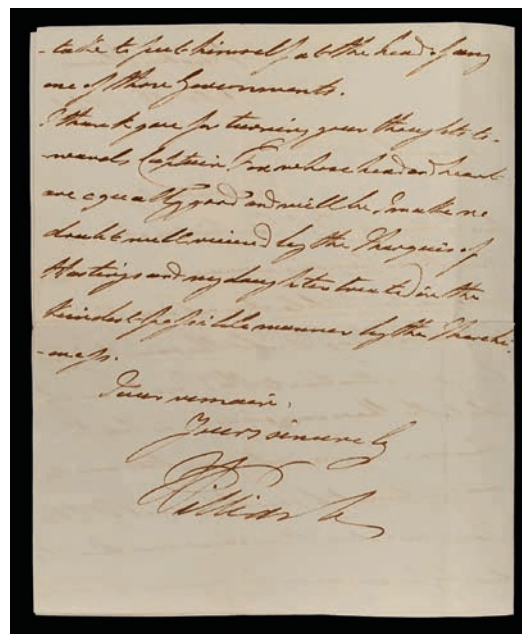 -take to put himself at the head of any
one of those Governments.
I thank you for turning your thoughts to-
-wards Captain Fox whose head and heart
are equally good and will be I make no
doubt well received by the Marquis of
Hastings and my daughter treated in the
kindest possible manner by the Marchio-
-ness.
Ever remain,
Yours sincerely
William